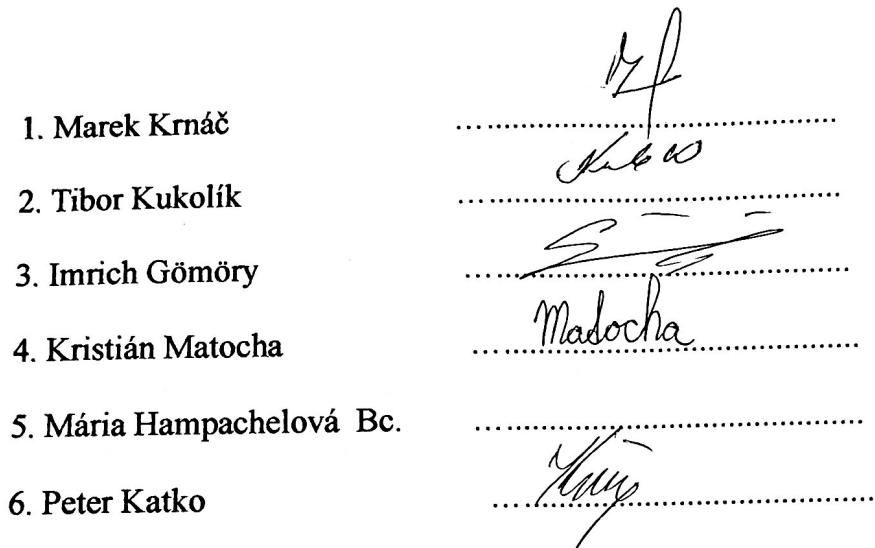 1. Marek Krnáč ..............................
2. Tibor Kukolík ..............................
3. Imrich Gömöry ..............................
4. Kristián Matocha Matocha ..............................
5. Mária Hampachelová Bc. ..............................
6. Peter Katko ..............................